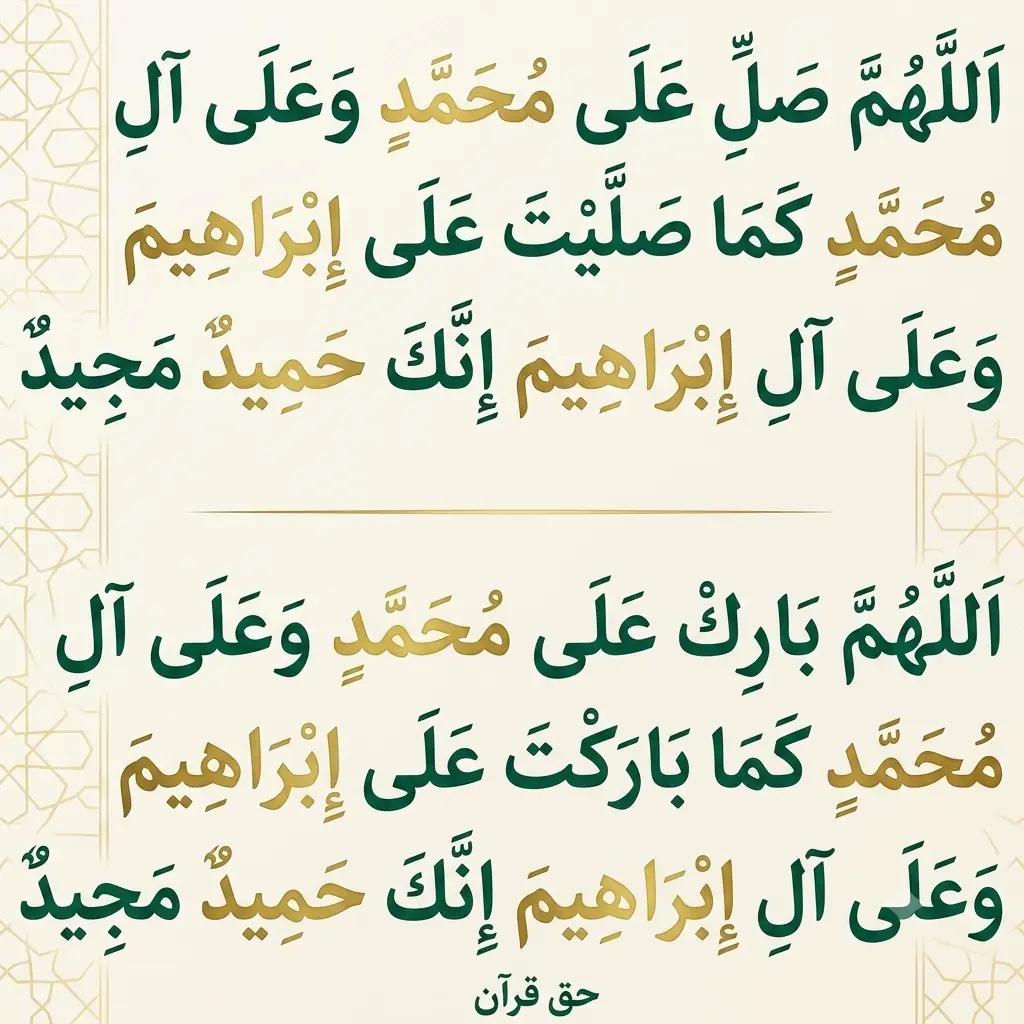 اَللَّهُمَّ صَلِّ عَلَى مُحَمَّدٍ وَعَلَى آلِ
مُحَمَّدٍ كَمَا صَلَّيْتَ عَلَى إِبْرَاهِيمَ
وَعَلَى آلِ إِبْرَاهِيمَ إِنَّكَ حَمِيدٌ مَجِيدٌ
اَللَّهُمَّ بَارِكْ عَلَى مُحَمَّدٍ وَعَلَى آلِ
مُحَمَّدٍ كَمَا بَارَكْتَ عَلَى إِبْرَاهِيمَ
وَعَلَى آلِ إِبْرَاهِيمَ إِنَّكَ حَمِيدٌ مَجِيدٌ
حق قرآن